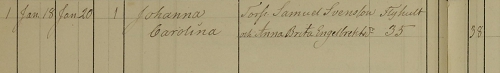 1 Jan. 18 Jan 20 1 Johanna Torp. Samuel Svensson Flyhult
Carolina och Anna Brita Engelbrektsdr 35 38